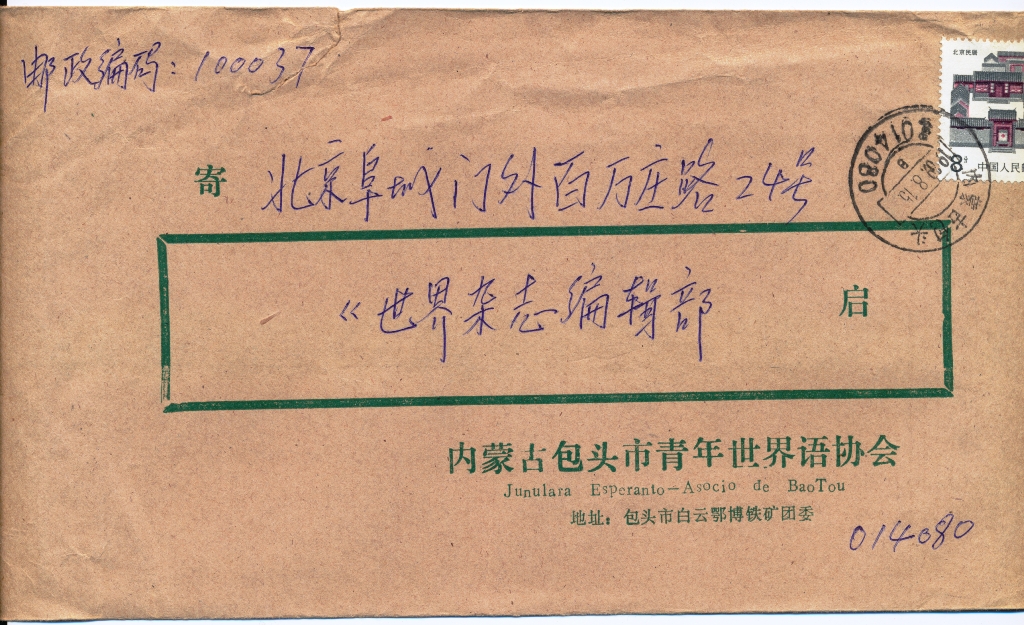 邮政编码：100037
北京民居
8分
中国人民邮
014080
内蒙古包头
寄 北京阜城门外百万庄路24号
《世界杂志编辑部 启
内蒙古包头市青年世界语协会
Junulara Esperanto—Asocio de BaoTou
地址：包头市白云鄂博铁矿团委
014080